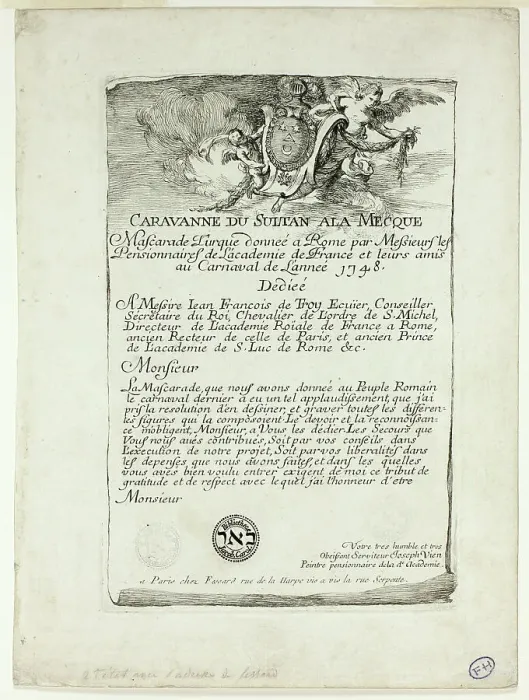 CARAVANNE DU SULTAN A LA MECQUE
Mascarade Turque donneé a Rome par Messieurs les
Pensionnaires de L'academie de France et leurs amis
au Carnaval de L'anneé 1748.
Dédieé
A Messire Iean Francois de Troy Ecuier, Conseiller,
Sécrétaire du Roi, Chevalier de L'ordre de S. Michel,
Directeur de L'academie Roïale de France a Rome,
ancien Recteur de celle de Paris, et ancien Prince
de L'academie de S. Luc de Rome &c.
Monsieur
La Mascarade, que nous avons donneé au Peuple Romain
le carnaval dernier a eu un tel applaudissement, que j'ai
pris la resolution d'en dessiner, et graver toutes les differen-
tes figures qui la composoient. Le devoir et la reconnoissan-
ce m'obligent, Monsieur, a Vous les dédier. Les Secours que
Vous nous avés contribués, Soit par vos conseils dans
L'execution de notre projet, Soit par vos liberalités dans
les depenses que nous avons faites, et dans les quelles
vous avés bien voulu entrer exigent de moi ce tribut de
gratitude et de respect avec le quel j'ai l'honneur d'etre
Monsieur
באר
Votre tres humble et tres
Obeissant Serviteur Joseph Vien
Peintre pensionnaire de la dᵉ Academie.
a Paris chez Fessard rue de la Harpe vis a vis la rue Serpente.
FH